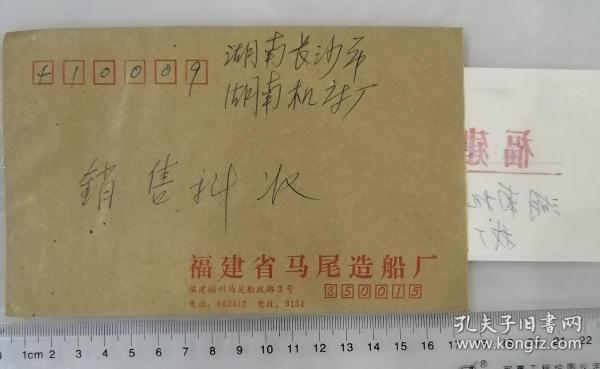 410009
湖南长沙市
湖南机床厂
銷售科收
福建省马尾造船厂
福建福州马尾船政路3号
350015
电话：682412 电挂：9134
福建
孔夫子旧书网
kongfz.com
0 1cm 2 3 4 5 6 7 8 9 10 11 12 13 14 15 16 17 18 19 20 21 22